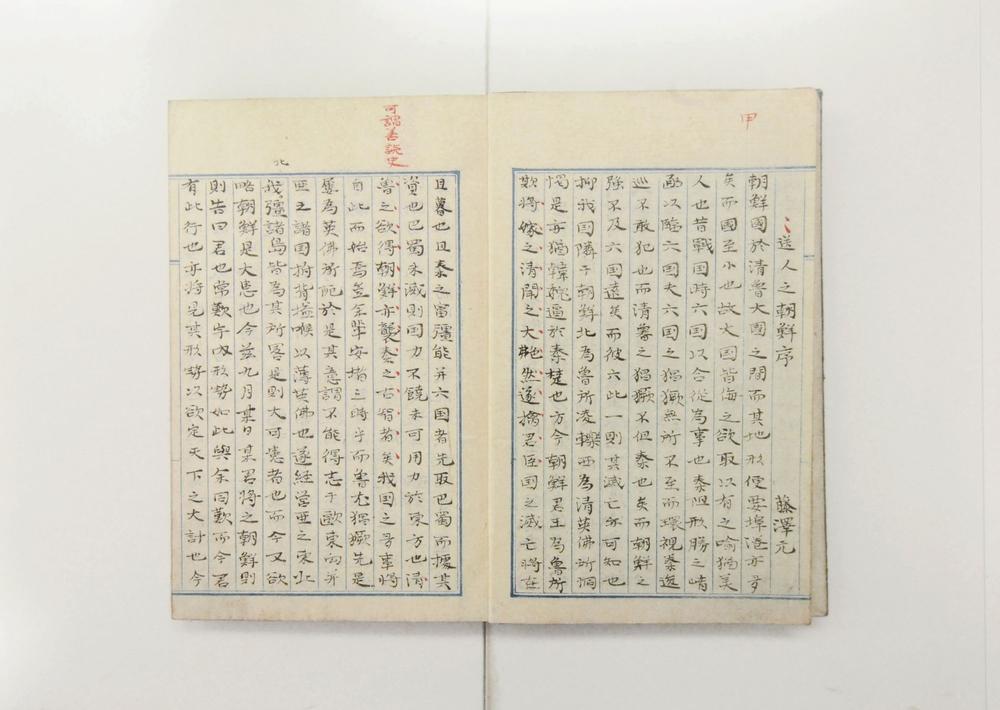 甲
送人之朝鮮序
藤澤元
朝鮮國於清魯大國之間而其地形便要埠港亦多
矣而國至小也故大国皆侮之欲取以有之喻猶美
人也昔戰国時六国以合従為事也秦阻形勝之
以臨六国夫六国之猖獗無所不至而環視秦逡
巡不敢犯也而清魯之猖獗不但秦也矣而朝鮮之
強不及六国遠矣而彼六此一則其滅亡亦可知也
抑我国隣于朝鮮北為魯所凌轢西為清英佛所恫
愒是亦猶韓魏逼於秦楚也方今朝鮮君王為魯所
欺将嫁之清聞之大艴然遂擒君臣国之滅亡将在
可謂善談史
旦暮也且秦之富彊能并六国者先取巴蜀而據其
資也巴蜀未滅則国力不饒未可用力於東方也清
魯之欲得朝鮮亦襲秦之古智者矣我国之多事将
自此而始焉豈余輩安堵之時乎而魯尤猖獗先是
屡為英佛所扼於是其意謂不能得志于歐東向并
亜之諸国拊背搤喉以薄英佛也遂経営亜之東北
北
我彊諸島皆為其所畧是則大可患者也而今又欲
略朝鮮是大患也今茲九月某日某君将之朝鮮則
則告曰君也常歎宇内形勢如此與余同歎而今君
有此行也亦将見其形勢以欲定天下之大計也今